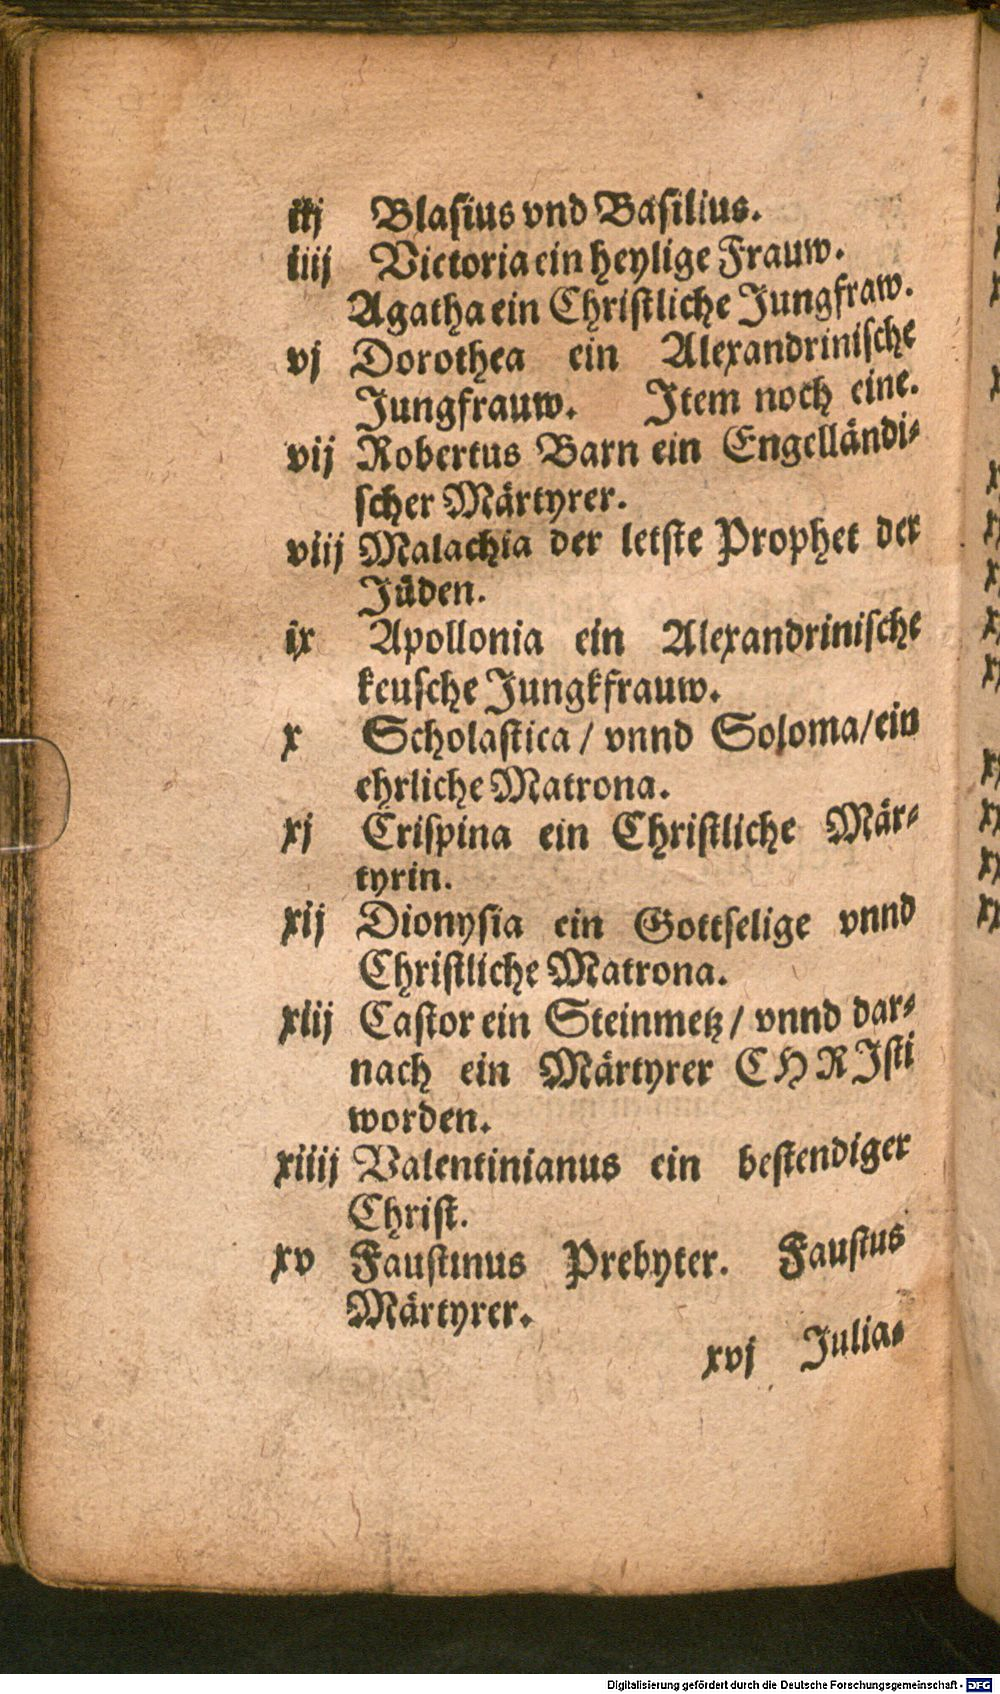 iij Blasius vnd Basilius.
iiij Victoria ein heylige Frauw.
Agatha ein Christliche Jungfraw.
vj Dorothea ein Alexandrinische
Jungfrauw. Item noch eine.
vij Robertus Barn ein Engelländi-
scher Märtyrer.
viij Malachia der letste Prophet der
Jüden.
ix Apollonia ein Alexandrinische
keusche Jungkfrauw.
x Scholastica / vnnd Soloma / ein
ehrliche Matrona.
xj Crispina ein Christliche Mär-
tyrin.
xij Dionysia ein Gottselige vnnd
Christliche Matrona.
xiij Castor ein Steinmetz / vnnd dar-
nach ein Märtyrer CHRIsti
worden.
xiiij Valentinianus ein bestendiger
Christ.
xv Faustinus Prebyter. Faustus
Märtyrer.
xvj Julia-
Digitalisierung gefördert durch die Deutsche Forschungsgemeinschaft - DFG